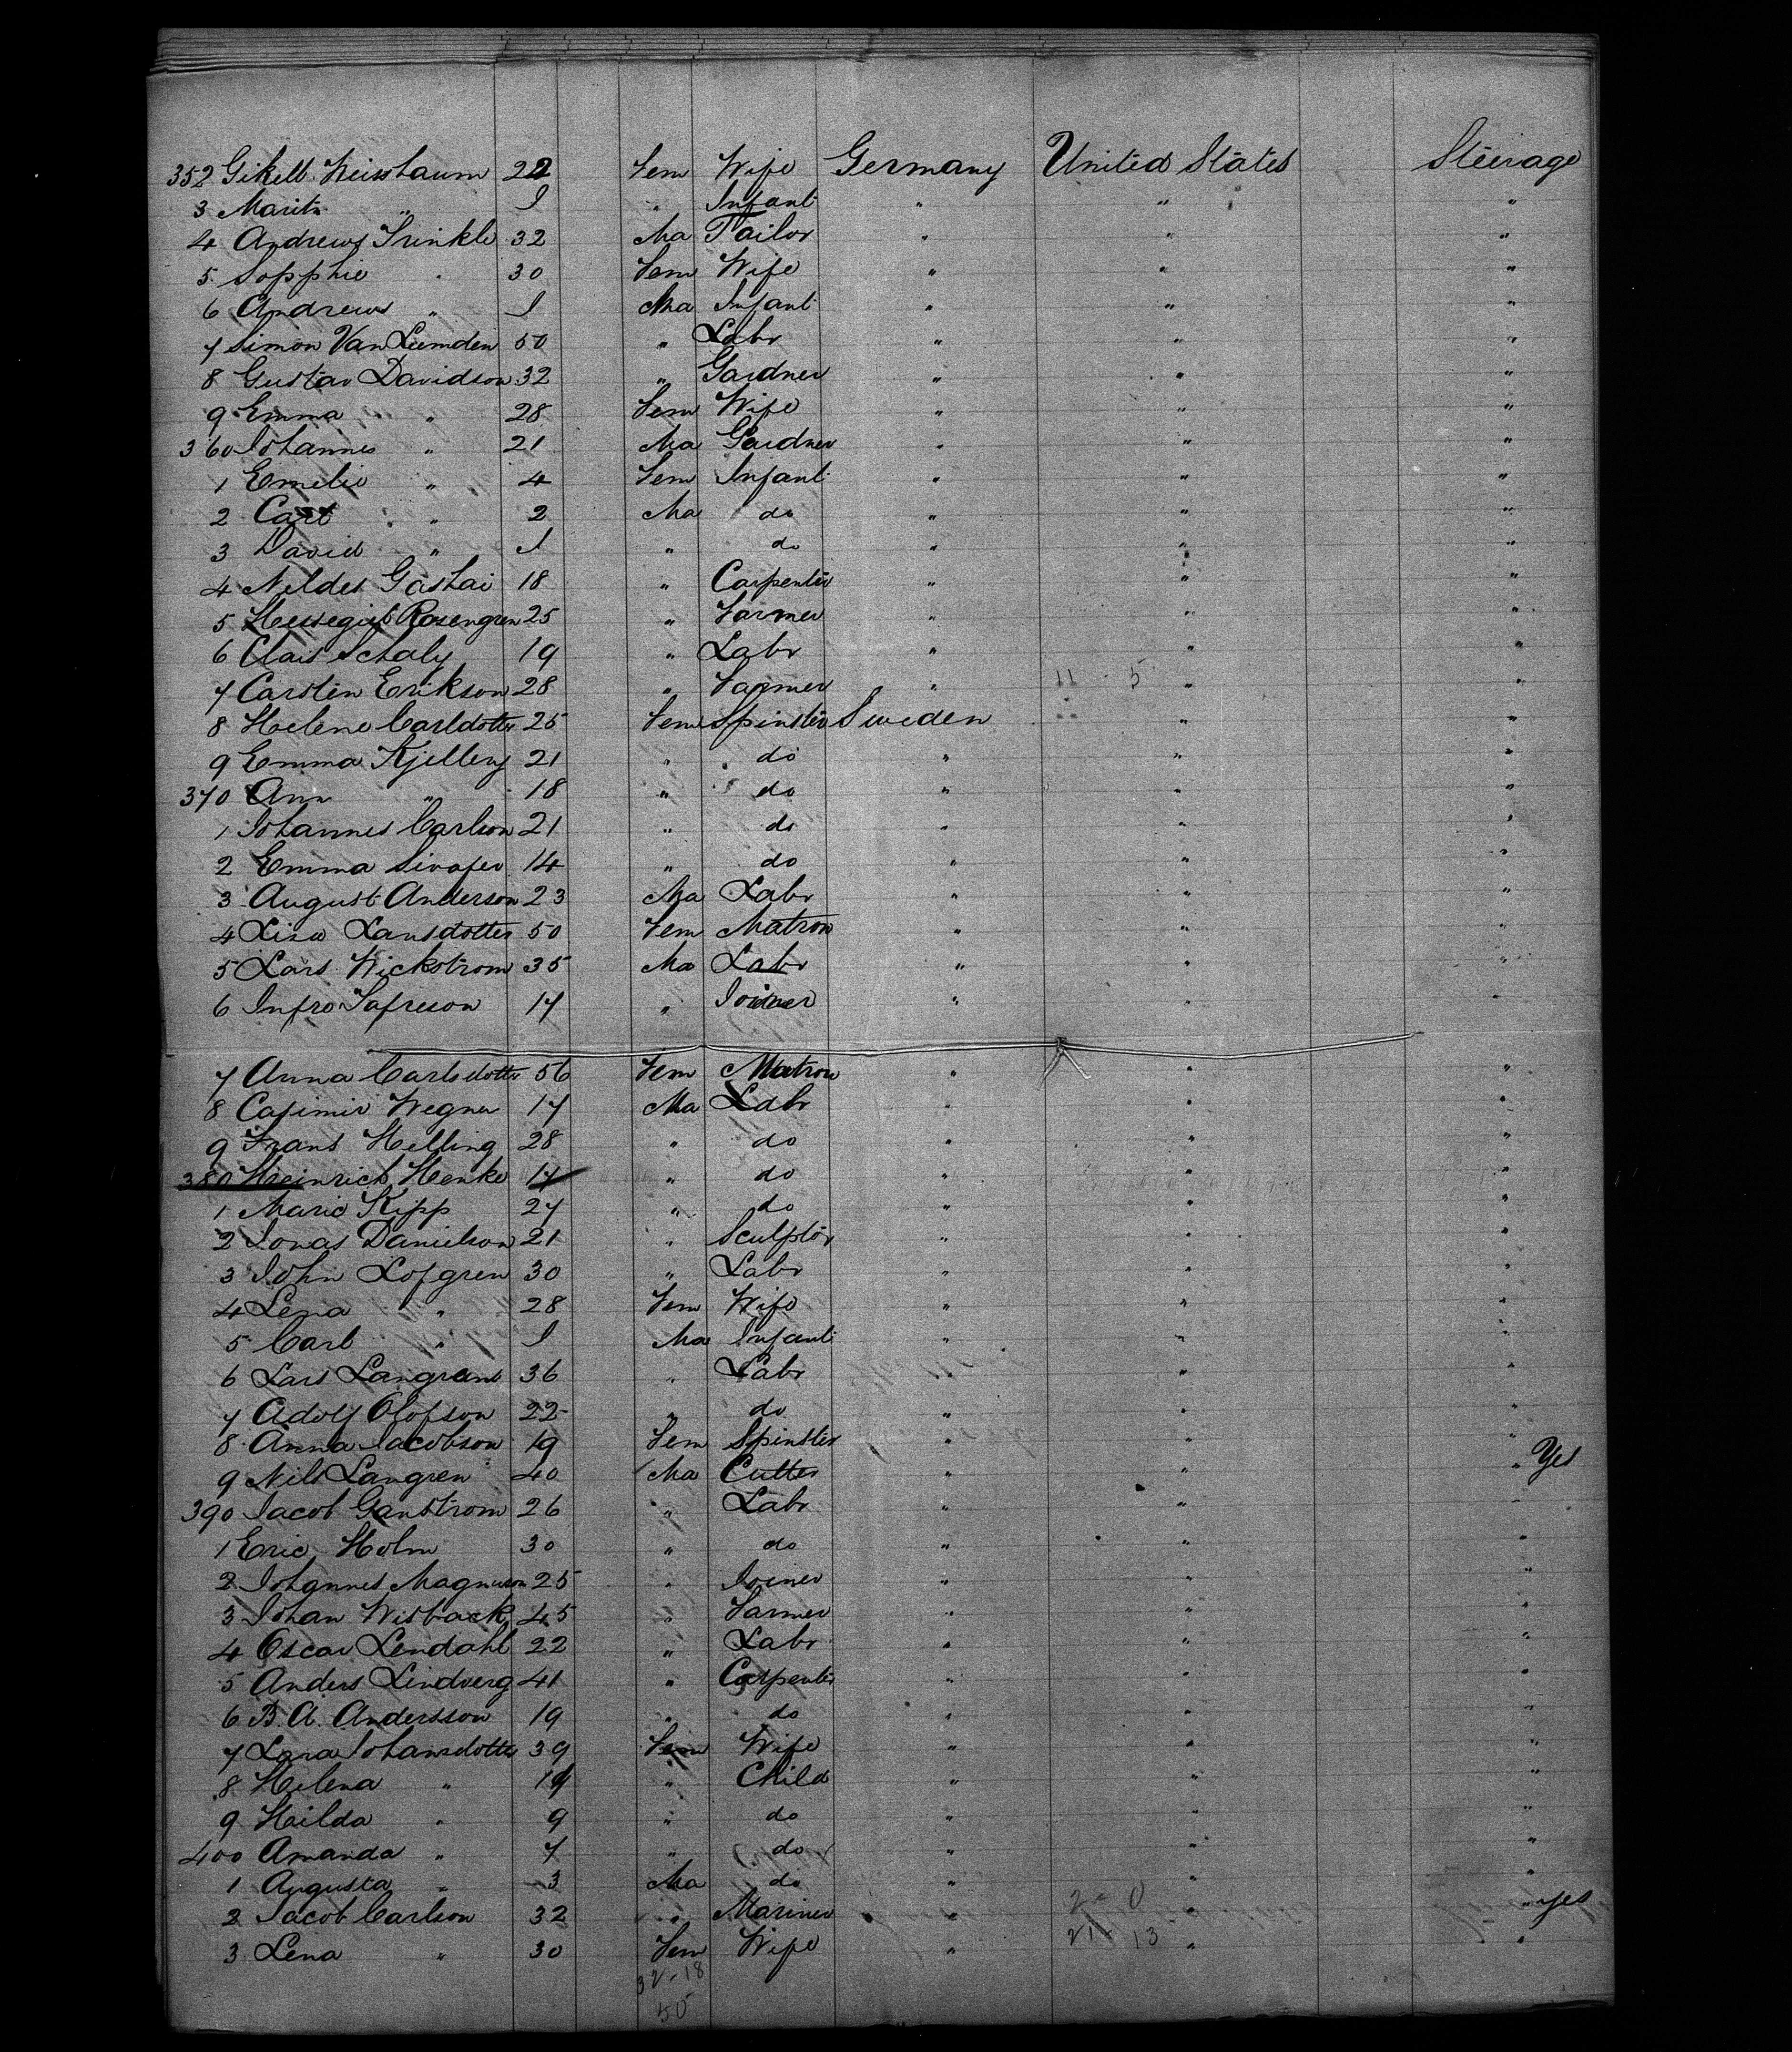 352 Gikell Weissbaum 22 Fem Wife Germany United States Steerage
3 Moritz " 1 " Infant " " "
4 Andrews Trinkle 32 Ma Tailor " " "
5 Sopphie " 30 Fem Wife " " "
6 Andrews " 1 Ma Infant " " "
7 Simon Van Leemden 50 " Labr " " "
8 Gustav Davidson 32 " Gardner " " "
9 Emma " 28 Fem Wife " " "
360 Johannes " 21 Ma Gardner " " "
1 Emelie " 4 Fem Infant " " "
2 Carl " 2 Ma do " " "
3 David " 1 " do " " "
4 Nildes Gashai 18 " Carpenter " " "
5 Rosengren 25 " Farmer " " "
6 Clais Schaly 19 " Labr " " "
7 Carolin Erikson 28 " Farmer " 11 - 5 " "
8 Helene Carldotter 25 Fem Spinster Sweden " "
9 Emma Kjellerg 21 " do " " "
370 Ann " 18 " do " " "
1 Johannes Carlson 21 " do " " "
2 Emma 14 " do " " "
3 August Anderson 23 Ma Labr " " "
4 Lisa Larsdotter 50 Fem Matron " " "
5 Lars Wickstrom 35 Ma Labr " " "
6 17 " Joiner " " "
7 Anna Carlsdotter 56 Fem Matron " " "
8 Casimir Wegner 17 Ma Labr " " "
9 Frans Helling 28 " do " " "
380 Heinrich Henke 17 " do " " "
1 Marie Kipp 27 " do " " "
2 Jonas Danielson 21 " Sculptor " " "
3 John Lofgren 30 " Labr " " "
4 Lena " 28 Fem Wife " " "
5 Carl " 1 Ma Infant " " "
6 Lars Langrens 36 " Labr " " "
7 Adolf Olofson 22 " do " " "
8 Anna Jacobson 19 Fem Spinster " " "
9 Nils Langren 40 Ma Cutter " " " Yes
390 Jacob Ganstrom 26 " Labr " " "
1 Eric Holm 30 " do " " "
2 Johannes Magnuson 25 " Joiner " " "
3 Johan Wisback 45 " Farmer " " "
4 Oscar Lendahl 22 " Labr " " "
5 Anders Lindverg 41 " Carpenter " " "
6 B. A. Andersson 19 " do " " "
7 Lara Johansdotter 39 Fem Wife " " "
8 Helena " " Child " " "
9 Hilda " 9 " do " " "
400 Amanda " 7 " do " " "
1 Augusta " 3 Ma do " " "
2 Jacob Carlson 32 " Mariner " 2 - 0 " " yes
3 Lena " 30 Fem Wife " 21 - 13 " "
32 - 18
50